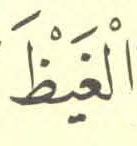 الْغَيْظَ